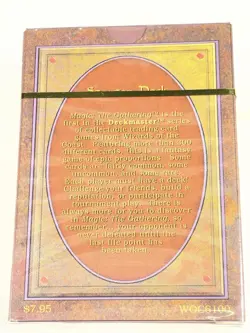 Magic: The Gathering® is the
first in the Deckmaster™ series
of collectable trading card
games from Wizards of the
Coast. Featuring more than 300
different cards. This is a fantasy
game of epic proportions. Some
cards are common, some
uncommon, and some are
Each player
Challenge your friends, build a
reputation, or participate in
tournament play. There is
always more for you to discover
in Magic: The Gathering, so
remember your opponent is
never defeated until the
last life point has
been taken.
$7.95
WOC6100